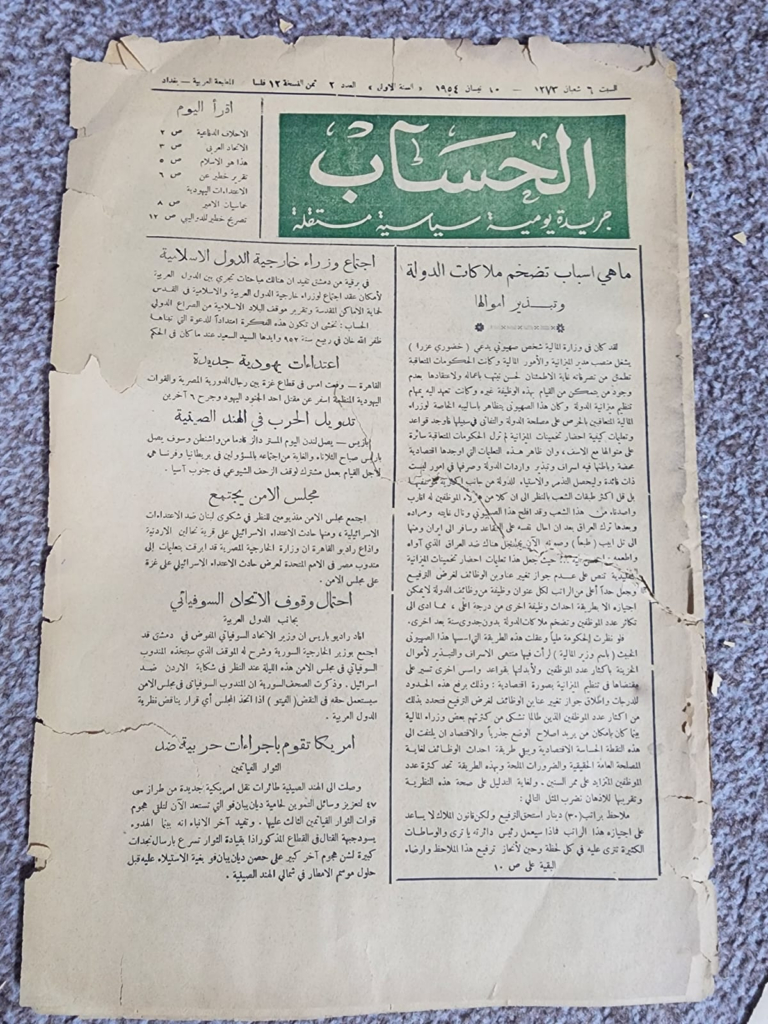 السبت ٦ شعبان ١٣٧٣ — ١٠ نيسان ١٩٥٤ « السنة الاولى » العدد ٢ ثمن النسخة ١٢ فلسا المطبعة العربية — بغداد
الحساب
جريدة يومية سياسية مستقلة
اقرأ اليوم
الاحلاف الدفاعية ص ٢
الاتحاد العربي ص ٣
هذا هو الاسلام ص ٥
تقرير خطير عن ص ٦
الاعتداءات اليهودية
ص ٨
تصريح خطير للدواليبي ص ١٢
ماهي اسباب تضخم ملاكات الدولة
وتبذير اموالها
لقد كان في وزارة المالية شخص صهيوني يدعى ( خضوري عزرا )
يشغل منصب مدير الميزانية والأمور المالية وكانت الحكومات المتعاقبة
تطمئن من تصرفاته غاية الاطمئنان لحسن نيتها باعماله ولاعتقادها بعدم
وجود من يتمكن من القيام بهذه الوظيفة غيره وكانت تعهد اليه بمهام
تنظيم ميزانية الدولة وكان هذا الصهيوني يتظاهر باساليبه الخاصة لوزراء
المالية المتعاقبين بالحرص على مصلحة الدولة والتفاني في سبيلها باوجد قواعد
وتعليمات كيفية احضار تخمينات الميزانية لم تزل الحكومات المتعاقبة سائرة
على منوالها مع الاسف وان ظاهر هذه التعليمات التي اوجدها اقتصادية
محضة وباطنها فيه اسراف وتبذير واردات الدولة وصرفها في امور ليست
ذات فائدة وليحصل التذمر والاستياء للدولة من جانب
بل قل اكثر طبقات الشعب بالنظر الى ان كلا من هؤلاء الموظفين له اقارب
واصدقاء من هذا الشعب وقد افلح هذا الصهيوني ونال غايته ومراده
وبعدها ترك العراق بعد ان احال نفسه على التقاعد وسافر الى ايران ومنها
الى تل ابيب ( طبعاً ) هناك ضد العراق الذي آواه
واطعمه حيث جعل هذا تعليمات احضار تخمينات الميزانية
تنص على عدم جواز تغيير عناوين الوظائف لغرض الترفيع
وجعل حداً أعلى من الراتب لكل عنوان وظيفة من وظائف الدولة لايمكن
اجتيازه الا بطريقة احداث وظيفة اخرى من درجة اعلى مما ادى الى
تكاثر عدد الموظفين وتضخم ملاكات الدولة بدون جدوى سنة بعد اخرى.
فلو نظرت الحكومة ملياً وعقلت هذه الطريقة التي اسسها هذا الصهيوني
الخبيث ( باسم وزير المالية ) لرأت فيها منتهى الاسراف والتبذير لأموال
الخزينة باكثار عدد الموظفين ولأبدلتها بقواعد واسس اخرى تسير على
مقتضاها في تنظيم الميزانية بصورة اقتصادية : وذلك برفع هذه الحدود
للدرجات واطلاق جواز تغيير عناوين الوظائف لغرض الترفيع فتحدد بذلك
من اكثار عدد الموظفين الذين طالما نشتكي من كثرتهم بعض وزراء المالية
بينما كان بامكان من يريد اصلاح الوضع جذرياً والاقتصاد ان يلتفت الى
هذه النقطة الحساسة الاقتصادية ويبقي طريقة احداث الوظائف لغاية
المصلحة العامة الحقيقية والضرورات الملحة وبهذه الطريقة تحد كثرة عدد
الموظفين المتزايد على ممر السنين . ولغاية التدليل على صحة هذه النظرية
وتقريبها للاذهان نضرب المثل التالي :
ملاحظ براتب (٣٠) دينار استحق الترفيع ولكن قانون الملاك لا يساعد
على اجتيازه هذا الراتب فماذا سيعمل رئيس دائرته يا ترى والوساطات
الكثيرة تترى عليه في كل لحظة وحين لأنجاز ترفيع هذا الملاحظ وارضاء
البقية على ص ١٠
اجتماع وزراء خارجية الدول الاسلامية
في برقية من دمشق تفيد ان هنالك مباحثات تجري بين الدول العربية
لأمكان عقد اجتماع لوزراء خارجية الدول العربية والاسلامية في القدس
لحماية الاماكن المقدسة وتقرير موقف البلاد الاسلامية من الصراع الدولي
الحساب : نخشى ان تكون هذه الفكرة امتداداً للدعوة التي تبناها
ظفر الله خان في ربيع سنة ٩٥٢ وايدها السيد السعيد عند ما كان في الحكم
اعتداءات يهودية جديدة
القاهرة — وقعت امس في قطاع غزة بين رجال الدورية المصرية والقوات
اليهودية اسفر عن مقتل احد الجنود اليهود وجرح ٦ آخرين
تدويل الحرب في الهند الصينية
باريس — يصل لندن اليوم المستر دالز قادما من واشنطن وسوف يصل
باريس صباح الثلاثاء والغاية من اجتماعه بالمسؤولين في بريطانيا وفرنسا هي
لأجل القيام بعمل مشترك لوقف الزحف الشيوعي في جنوب آسيا .
مجلس الامن يجتمع
اجتمع مجلس الامن للنظر في شكوى لبنان ضد الاعتداءات
الاسرائيلية ومنها حادث الاعتداء الاسرائيلي على قرية نحالين الاردنية
واذاع راديو القاهرة ان وزارة الخارجية المصرية قد ابرقت بتعليمات إلى
مندوب مصر في الامم المتحدة لعرض حادث الاعتداء الاسرائيلي على غزة
على مجلس الامن .
احتمال وقوف الاتحاد السوفياتي
بجانب الدول العربية
افاد راديو باريس ان وزير الاتحاد السوفياتي المفوض في دمشق قد
اجتمع بوزير الخارجية السورية وشرح له الموقف الذي سيتخذه المندوب
السوفياتي في مجلس الامن هذه الليلة عند النظر في شكاية الاردن ضد
اسرائيل . وذكرت الصحف السورية ان المندوب السوفياتي في مجلس الامن
سيستعمل حقه في النقض ( الفيتو ) اذا اتخذ المجلس أي قرار يناقض نظرية
الدول العربية .
امريكا تقوم باجراءات حربية ضد
الثوار الفياتنمين
وصلت الى الهند الصينية طائرات نقل امريكية جديدة من طراز سي
٤٧ لتعزيز وسائل التموين لحامية ديان بيان فو التي تستعد الآن لتلقي هجوم
قوات الثوار الفياتنمين الثالث عليها . وتفيد آخر الانباء انه بينما الهدوء
يسود جبهة القتال في القطاع المذكور اذا بقيادة الثوار تسرع بارسال نجدات
كبيرة لشن هجوم آخر كبير على حصن ديان بيان فو بغية الاستيلاء عليه قبل
حلول موسم الامطار في شمالي الهند الصينية .